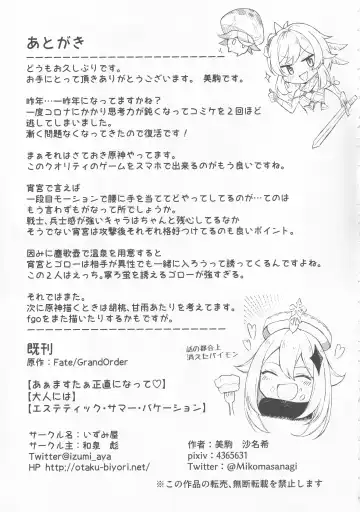 あとがき
どうもお久しぶりです。
お手にとって頂きありがとうございます。 美駒です。
昨年…一昨年になってますかね?
一度コロナにかかり思考力が鈍くなってコミケを2回ほど
逃してしまいました。
漸く問題なくなってきたので復活です!
まぁそれはさておき原神やってます。
このクオリティのゲームをスマホで出来るのがもう良いですね。
宵宮で言えば
一段目モーションで腰に手を当ててどやってしてるのが…てのは
もう言わずもがなって所でしょうか。
戦士、兵士感が強いキャラはちゃんと残心してるなか
そうでない宵宮は攻撃後それぞれ格好つけてるのも良いポイント。
因みに塵歌壺で温泉を用意すると
宵宮とゴローは相手が異性でも一緒に入ろうって誘ってくるんですよね。
この2人はえっち。寧ろ蛍を誘えるゴローが強すぎる。
それではまた。
次に原神描くときは胡桃、甘雨あたりを考えてます。
fgoをまた描いたりするかもですが。
既刊
原作:Fate/GrandOrder
【あぁますたぁ正直になって♡】
【大人には】
【エステティック・サマー・バケーション】
話の都合上
消えたパイモン
サークル名:いずみ屋
サークル主:和泉 彪
Twitter@izumi_aya
HP http://otaku-biyori.net/
作者:美駒 沙名希
pixiv:4365631
Twitter:@Mikomasanagi
※この作品の転売、無断転載を禁止します